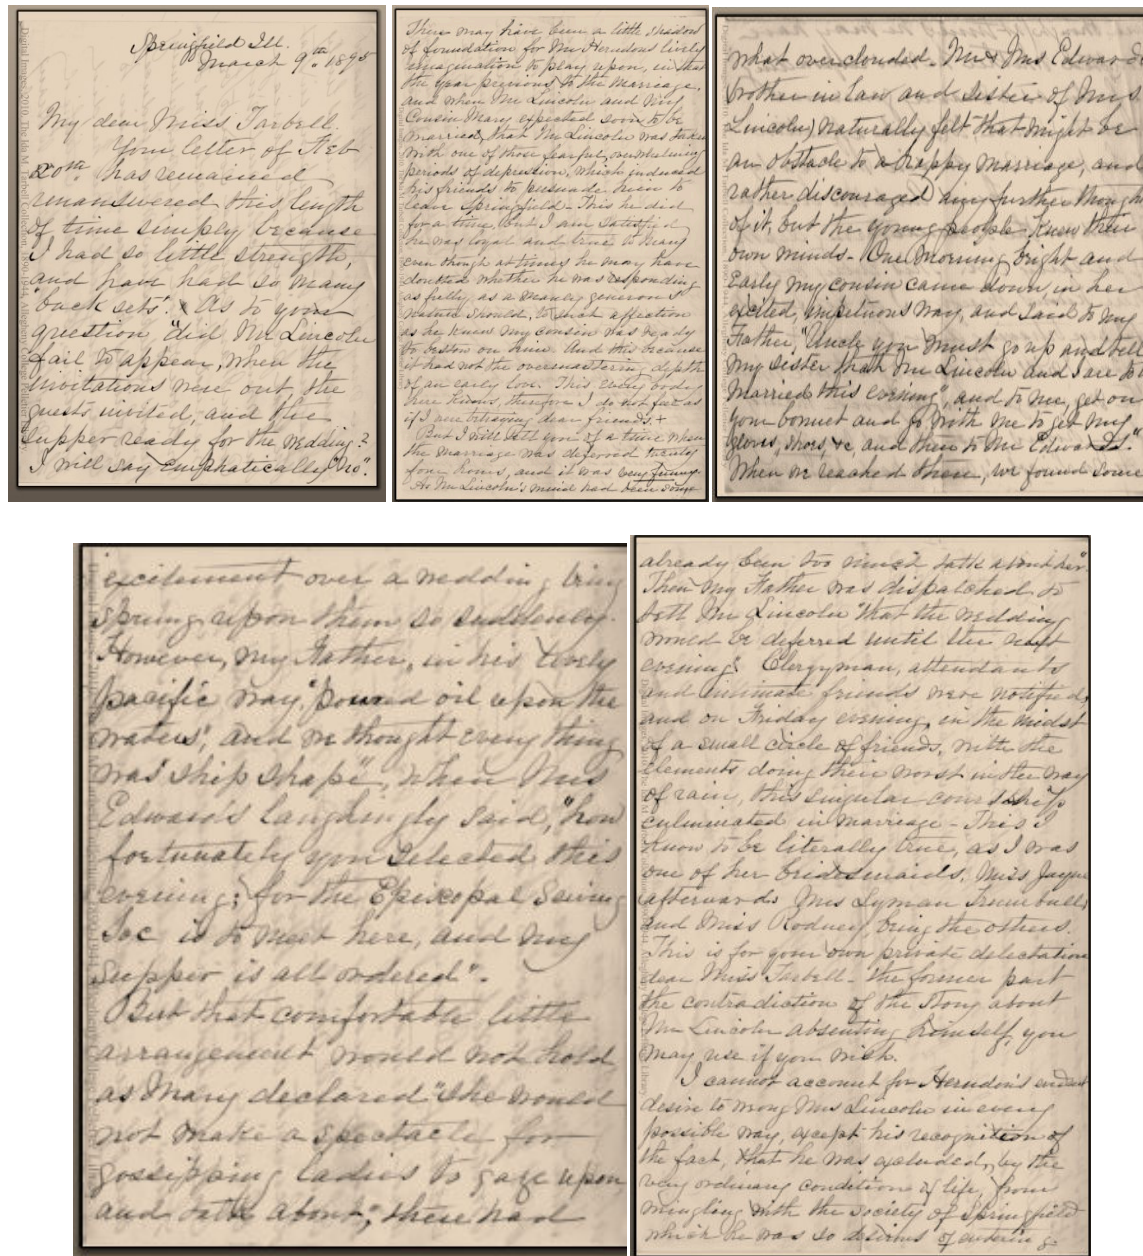 Springfield Ill.
March 9.th 1895
My dear Miss Tarbell.
Your letter of Feb
20th has remained
unanswered this length
of time simply because
I had so little strength,
and have had so many
"back sets". As to your
question "did Mr Lincoln
fail to appear, when the
invitations were out the
guests invited, and the
supper ready for the wedding?
I will say emphatically "no".
There may have been a little shadow
of foundation for Mr Herndons lively
imagination to play upon, in that
the year previous to the marriage,
and when Mr Lincoln and my
Cousin Mary expected soon to be
married, that Mr Lincoln was taken
with one of those fearful, overwhelming
periods of depression, which induced
his friends to persuade him to
leave Springfield - This he did
for a time, but I am satisfied
he was loyal and true to Mary
even though at times he may have
doubted whether he was responding
as fully, as a manly generous
nature should, to such affection
as he knew my cousin was ready
to bestow on him. And this because
it had not the overmastering depth
of an early love. This every body
here knows, therefore I do not feel as
if I were betraying dear friends. +
But I will tell you of a time when
the marriage was deferred twenty
four hours, and it was very funny.
As Mr Lincoln's mind had been some
what overclouded. Mr & Mrs Edwards
brother in law and sister of Mrs
Lincoln) naturally felt that might be
an obstacle to a happy marriage, and
rather discouraged any further thought
of it, but the young people knew their
own minds - One morning bright and
Early my cousin came down, in her
excited, impetuous way, and said to my
Father, "Uncle you must go up and tell
my sister that Mr Lincoln and I are to be
married this evening", and to me, get on
your bonnet and go with me to get my
gloves, shoes, &c and then to Mr Edwards."
When we reached there, we found some
excitement over a wedding being
sprung upon them so suddenly.
However, my Father, in his lovely
pacific way "poured oil upon the
waters", and we thought every thing
was "ship shape", when Mrs
Edward's laughingly said, "how
fortunately you selected this
evening; for the Episcopal Sewing
Soc is to meet here, and my
supper is all ordered".
But that comfortable little
arrangement would not hold
as Mary declared "she would
not make a spectacle for
gossipping ladies to gaze upon
and talk about;" there had
already been too much talk about her".
Then my Father was dispatched to
tell Mr Lincoln "that the wedding
would be deferred until the next
evening" Clergyman, attendants
and intimate friends were notified,
and on Friday evening, in the midst
of a small circle of friends, with the
elements doing their worst in the way
of rain, this singular courtship
culminated in marriage - This I
know to be literally true, as I was
one of her bridesmaids, Miss Jayne
(afterwards Mrs Lyman Trumbull)
and Miss Rodney being the others.
This is for your own private delectation
dear Miss Tarbell - the former part
the contradiction of the story about
Mr Lincoln absenting himself, you
may use if you wish.
I cannot account for Herndon's
desire to wrong Mrs Lincoln in every
possible way, except his recognition of
the fact, that he was excluded, by the
very ordinary condition of life, from
mingling with the society of Springfield
which he was so desirous of entering